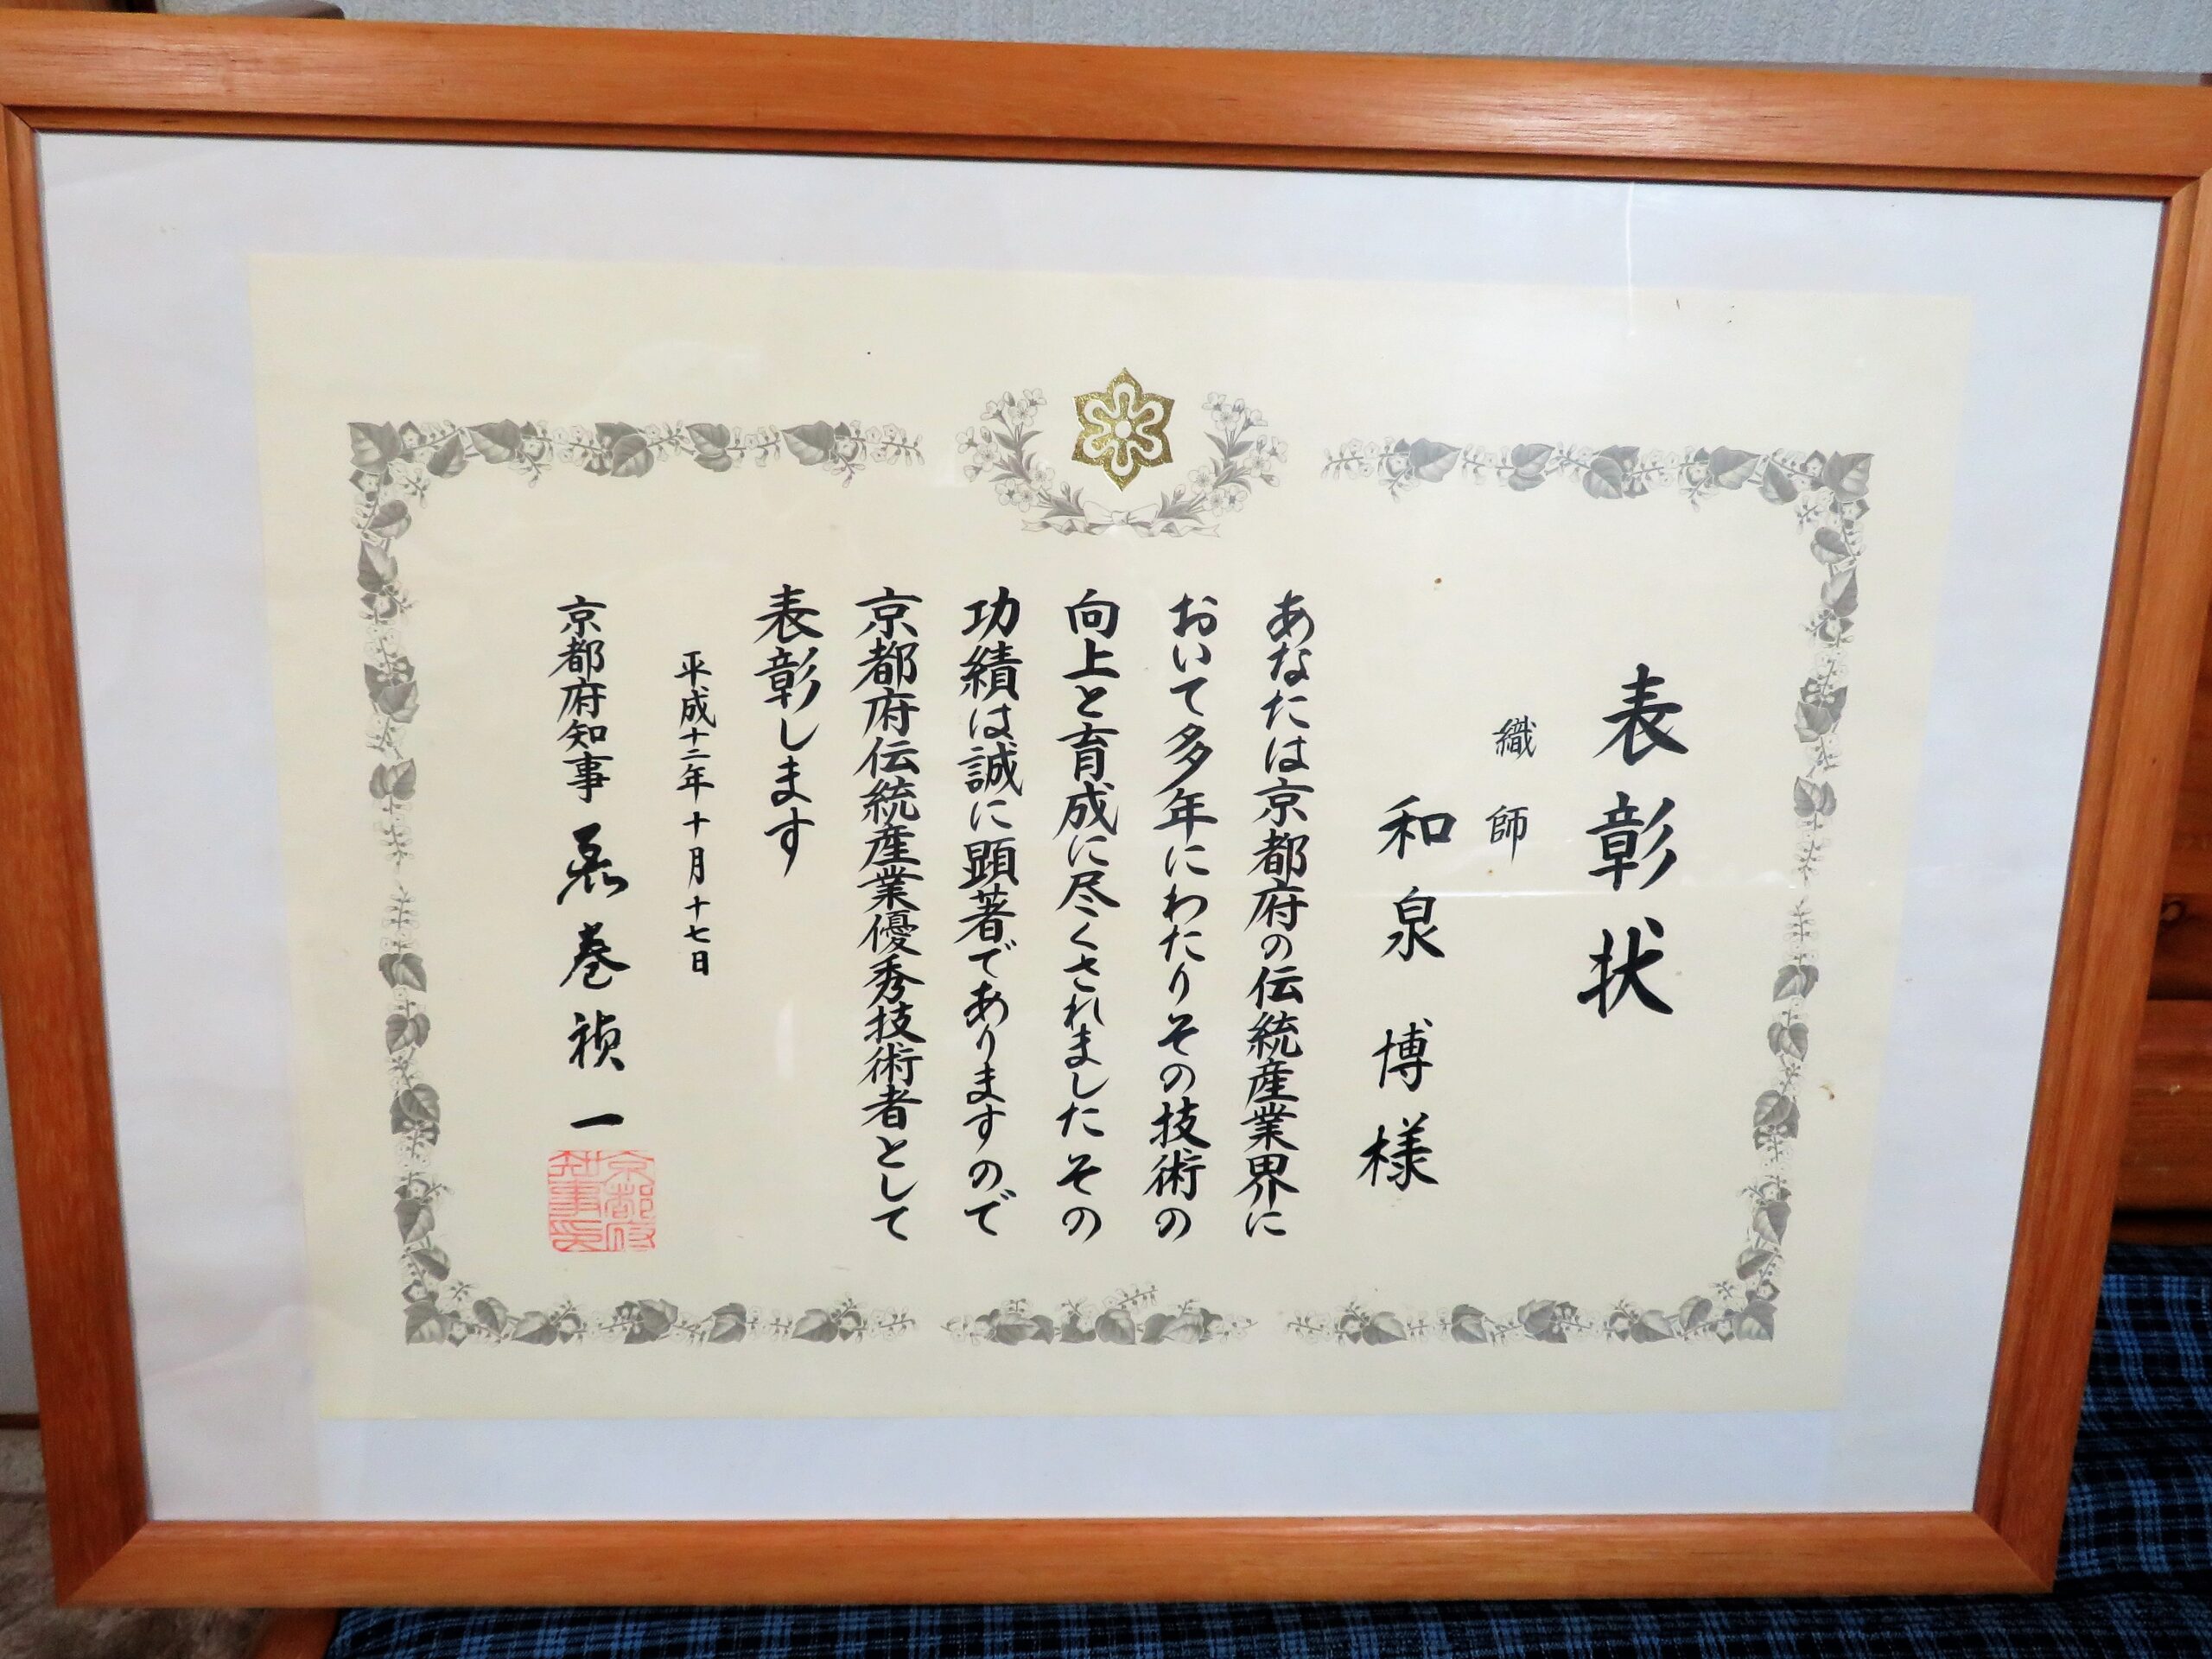 表彰状
織師
和泉 博様
あなたは京都府の伝統産業界に
おいて多年にわたりその技術の
向上と育成に尽くされましたその
功績は誠に顕著でありますので
京都府伝統産業優秀技術者として
表彰します
平成十二年十月十七日
京都府知事 荒巻禎一
京都府
知事印